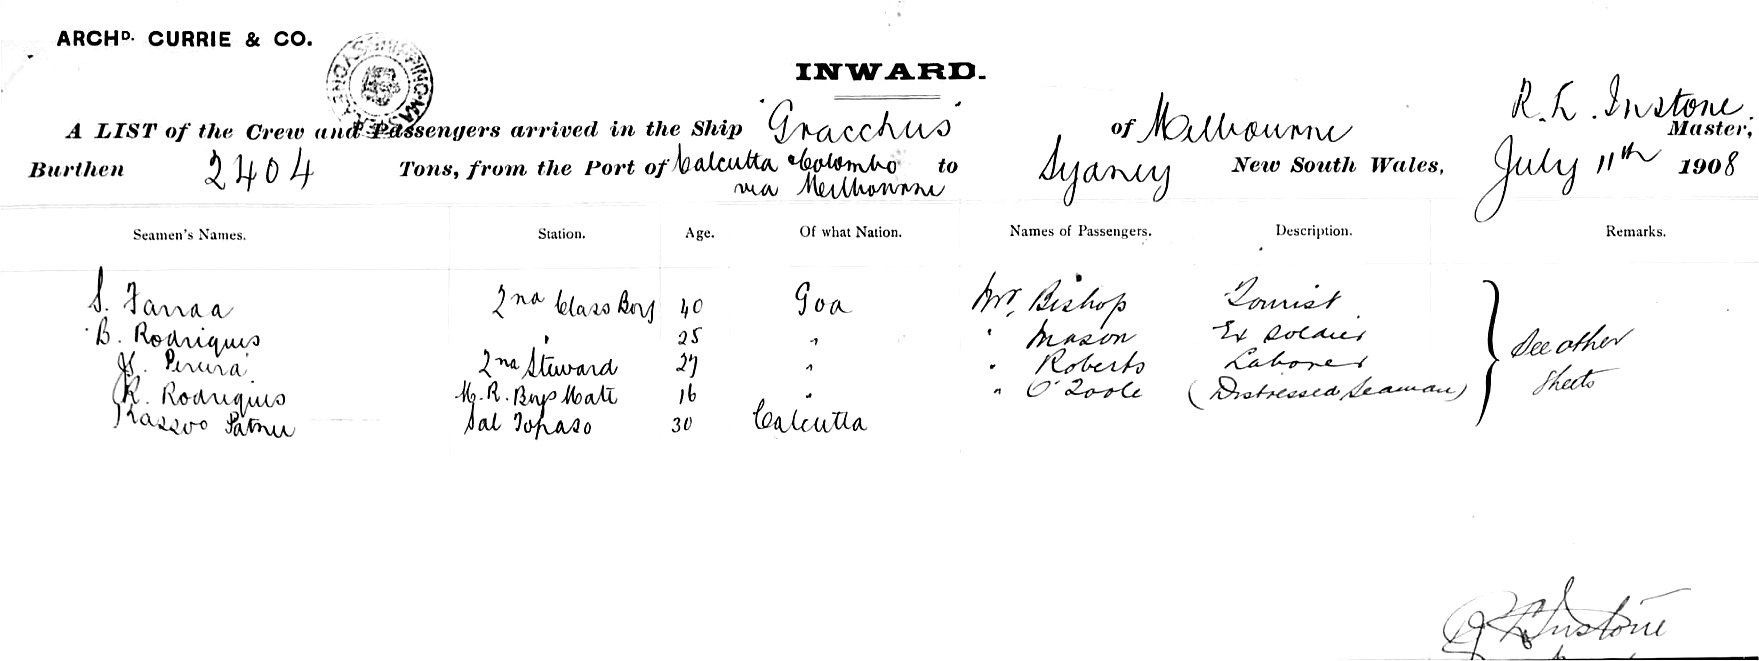 ARCHD. CURRIE & CO.
INWARD.
A LIST of the Crew and Passengers arrived in the Ship "Gracchus" of Melbourne R. L. Instone Master,
Burthen 2404 Tons, from the Port of Calcutta & Colombo via Melbourne to Sydney New South Wales, July 11th 1908
Seamen's Names. Station. Age. Of what Nation. Names of Passengers. Description. Remarks.
S. 2nd Class Boy 40 Goa Mr. Bishop Tourist
B. Rodrigues " 25 " " Mason Ex Soldier See other
Pereira 2nd Steward 27 " " Roberts Laborer sheets
R. Rodrigues M.R. Boys Mate 16 " " O'Toole (Distressed Seaman)
Kassoo Sal Topaso 30 Calcutta
R L Instone